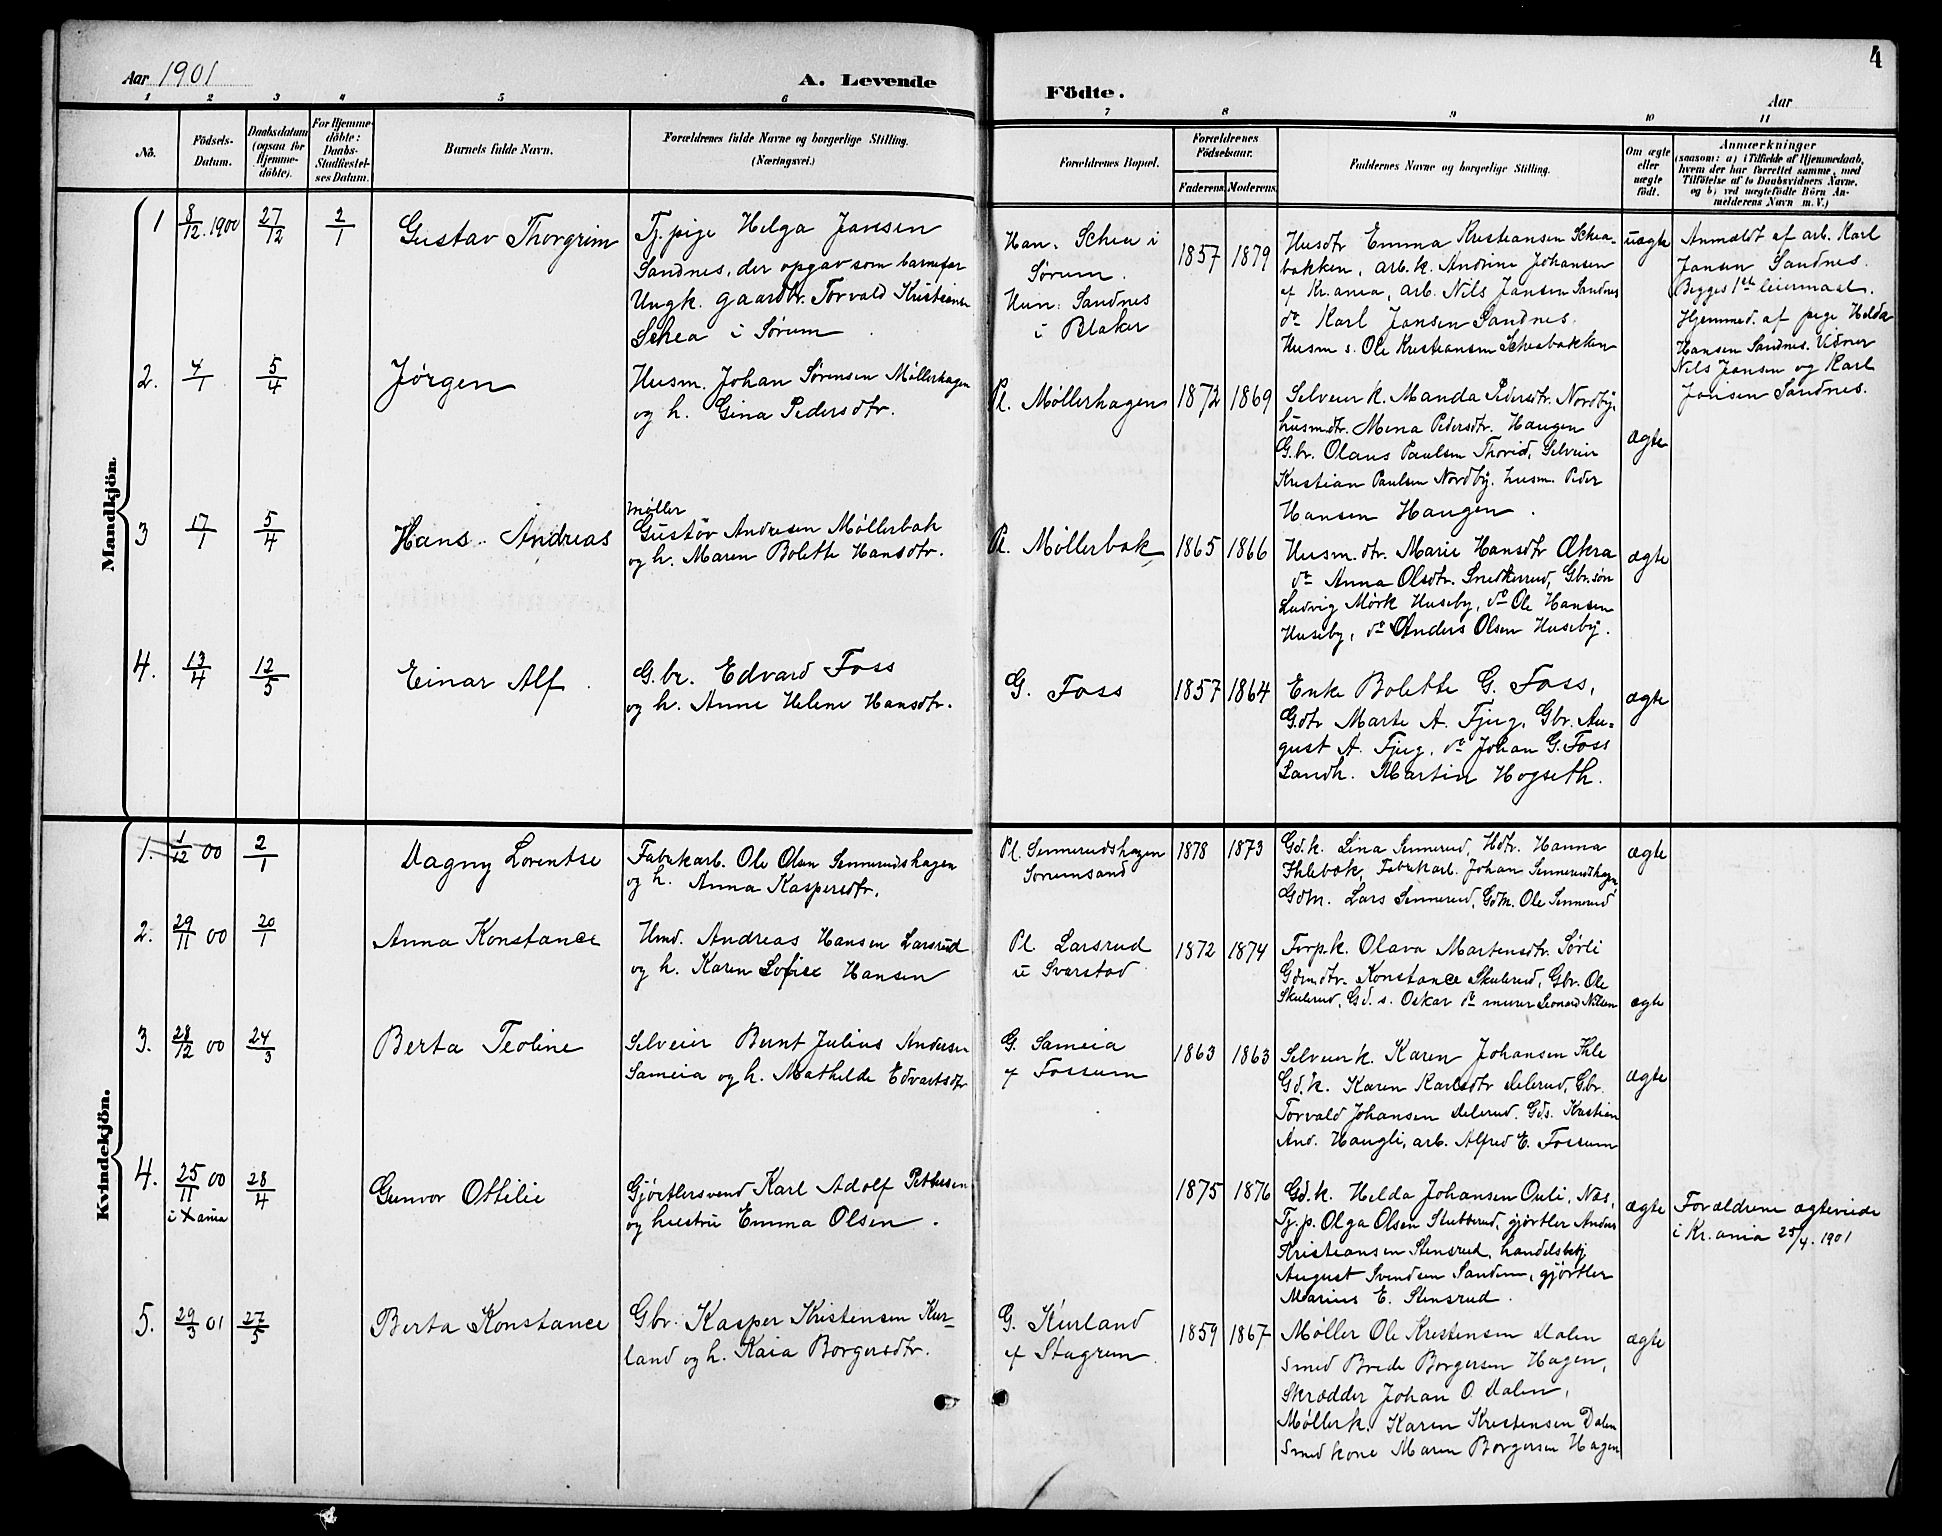 4
Aar 1901
A. Levende
Födte.
Aar
1 2 3 4 5 6 7 8 9 10 11
No.
Födsels-
Datum.
Daabsdatum
(ogsaa for
Hjemme-
döbte).
For Hjemme-
döbte:
Daabs-
Stadfæstel-
ses Datum.
Barnets fulde Navn.
Forældrenes fulde Navne og borgerlige Stilling.
(Næringsvei.)
Forældrenes Bopæl.
Forældrenes
Födselsaar.
Faderens. Moderens.
Faddernes Navne og borgerlige Stilling.
Om ægte
eller
uægte
födt.
Anmærkninger
(saasom: a) i Tilfælde af Hjemmedaab,
hvem der har forrettet samme, med
Tilföielse af to Daabsvidners Navne,
og b) ved uægtefödte Börn An-
melderens Navn m. V.)
Mandkjön.
1
8/12. 1900
27/12
2/1
Gustav Thorgrim
Tj. pige Helga Jansen
Sandnes, der opgav som barnefar
Ungk. gaardbr. Torvald Kristiansen
Schea i Sørum
Han. Schea i
Sørum.
Hun. Sandnes
i Blaker
1857
1879
Husdtr Emma Kristiansen Schea-
bakken, arb.k. Andrine Johansen
af Kr.ania, arb. Nils Jansen Sandnes
do Karl Jansen Sandnes.
Husm s. Ole Kristiansen Scheabakken
uægte
Anmeldt af arb. Karl
Jansen Sandnes.
Begges 1ste leiermaal.
Hjemmed. af pige Helda
Hansen Sandnes. Vidner
Nils Jansen og Karl
Jansen Sandnes.
2.
4/1
5/4
Jørgen
Husm. Johan Sørensen Møllerhagen
og h. Gina Pedersdtr.
Pl. Møllerhagen
1872
1869
Selveier k. Manda Pedersdtr. Nordby,
husmdtr. Mena Pedersdtr. Haugen
G.br. Olaus Paulsen Thorid, Selveier
Kristian Paulsen Nordby, husm. Peder
Hansen Haugen.
ægte
3
17/1
5/4
Hans Andreas
Møller
Gustav Andresen Møllerbak
og h. Maren Bolette Hansdtr.
Pl. Møllerbak
1865
1866
Husm.dtr. Marie Hansdtr Økra
do Anna Olsdtr. Snekkerud, Gbr.søn
Ludvig Mørk Huseby, do Ole Hansen
Huseby, do Anders Olsen Huseby.
ægte
4.
13/4
12/5
Einar Alf.
G.br. Edvard Foss
og h. Anne Helene Hansdtr.
G. Foss
1857
1864
Enke Bolette G. Foss,
G.dtr Marte A. Fjug, Gbr. Au-
gust A. Fjug, do Johan G. Foss
Landh. Martin Hogseth.
ægte
Kvindekjön.
1.
1/12 00
2/1
Dagny Lorentse
Fabrikarb. Ole Olsen Sennerudshagen
og h. Anna Kaspersdtr.
Pl. Sennerudshagen
Sørumsand
1878
1873
Gd.k. Lina Sennerud, Hdtr. Hanna
Ihlebak, Fabrikarb. Johan Sennerudhagen
Gdm. Lars Sennerud, Gdm. Ole Sennerud
ægte
2.
29/11 00
20/1
Anna Konstance
Hmd. Andreas Hansen Larsrud
og h. Karen Sofie Hansen
Pl. Larsrud
u Sverstad
1872
1874
Torp.k. Olava Martensdtr. Sørli
Gdmdtr. Konstance Skulerud, Gbr. Ole
Skulerud, Gd. s. Oskar do murer Leonard Nilsen
ægte
3.
28/12 00
24/3
Berta Teoline
Selveier Bernt Julius Andersen
Sameia og h. Mathilde Edvartsdtr
G. Sameia
af Fossum
1863
1863
Selveierk. Karen Johansen Ihle
Gd.k. Karen Karlsdtr Delerud, Gbr.
Torvald Johansen Delerud. Gds. Kristian
And. Haugli, arb. Alfred E. Fossum
ægte
4.
25/11 00
i Xania
28/4
Gunvor Ottilie
Gjørtlersvend Karl Adolf Pettersen
og hustru Emma Olsen.
1875
1876
Gd.k. Helda Johansen Ouli, Næs,
Tj.p. Olga Olsen Stubberud, gjørtler Anders
Kristiansen Stensrud, handelsbetj
August Svendsen Sanden, gjørtler
Marius E. Stensrud.
ægte
Forældrene ægteviede
i Kr.ania 25/4. 1901
5.
29/3 01
27/5
Berta Konstance
Gbr. Kasper Kristensen Kur-
land og h. Kaia Borgersdtr.
G. Kurland
af Stagrum.
1859
1867
Møller Ole Kristensen Dalen
smed Brede Borgersen Hagen,
Skrædder Johan O. Dalen,
Møllerk. Karen Kristensen Dalen
Smedkone Maren Borgersen Hagen
ægte